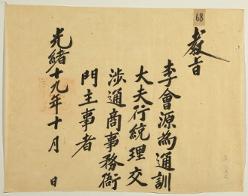 68
教旨
李會源為通訓
大夫行統理交
涉通商事務衙
門主事者
光緒十九年十月 日